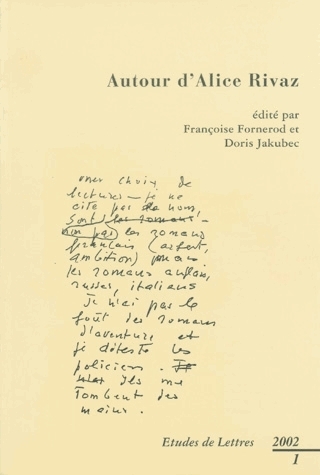 Autour d'Alice Rivaz
édité par
Françoise Fornerod et
Doris Jakubec
mon choix de
lectures – je ne
cite pas de noms,
sont les romans
non pas les romans
français (
ambition) mais
les romans anglais,
russes, italiens
Je n'ai pas le
goût des romans
d'aventure, et
je déteste les
policiers.
Ils me
tombent des
mains.
Etudes de Lettres 2002
1